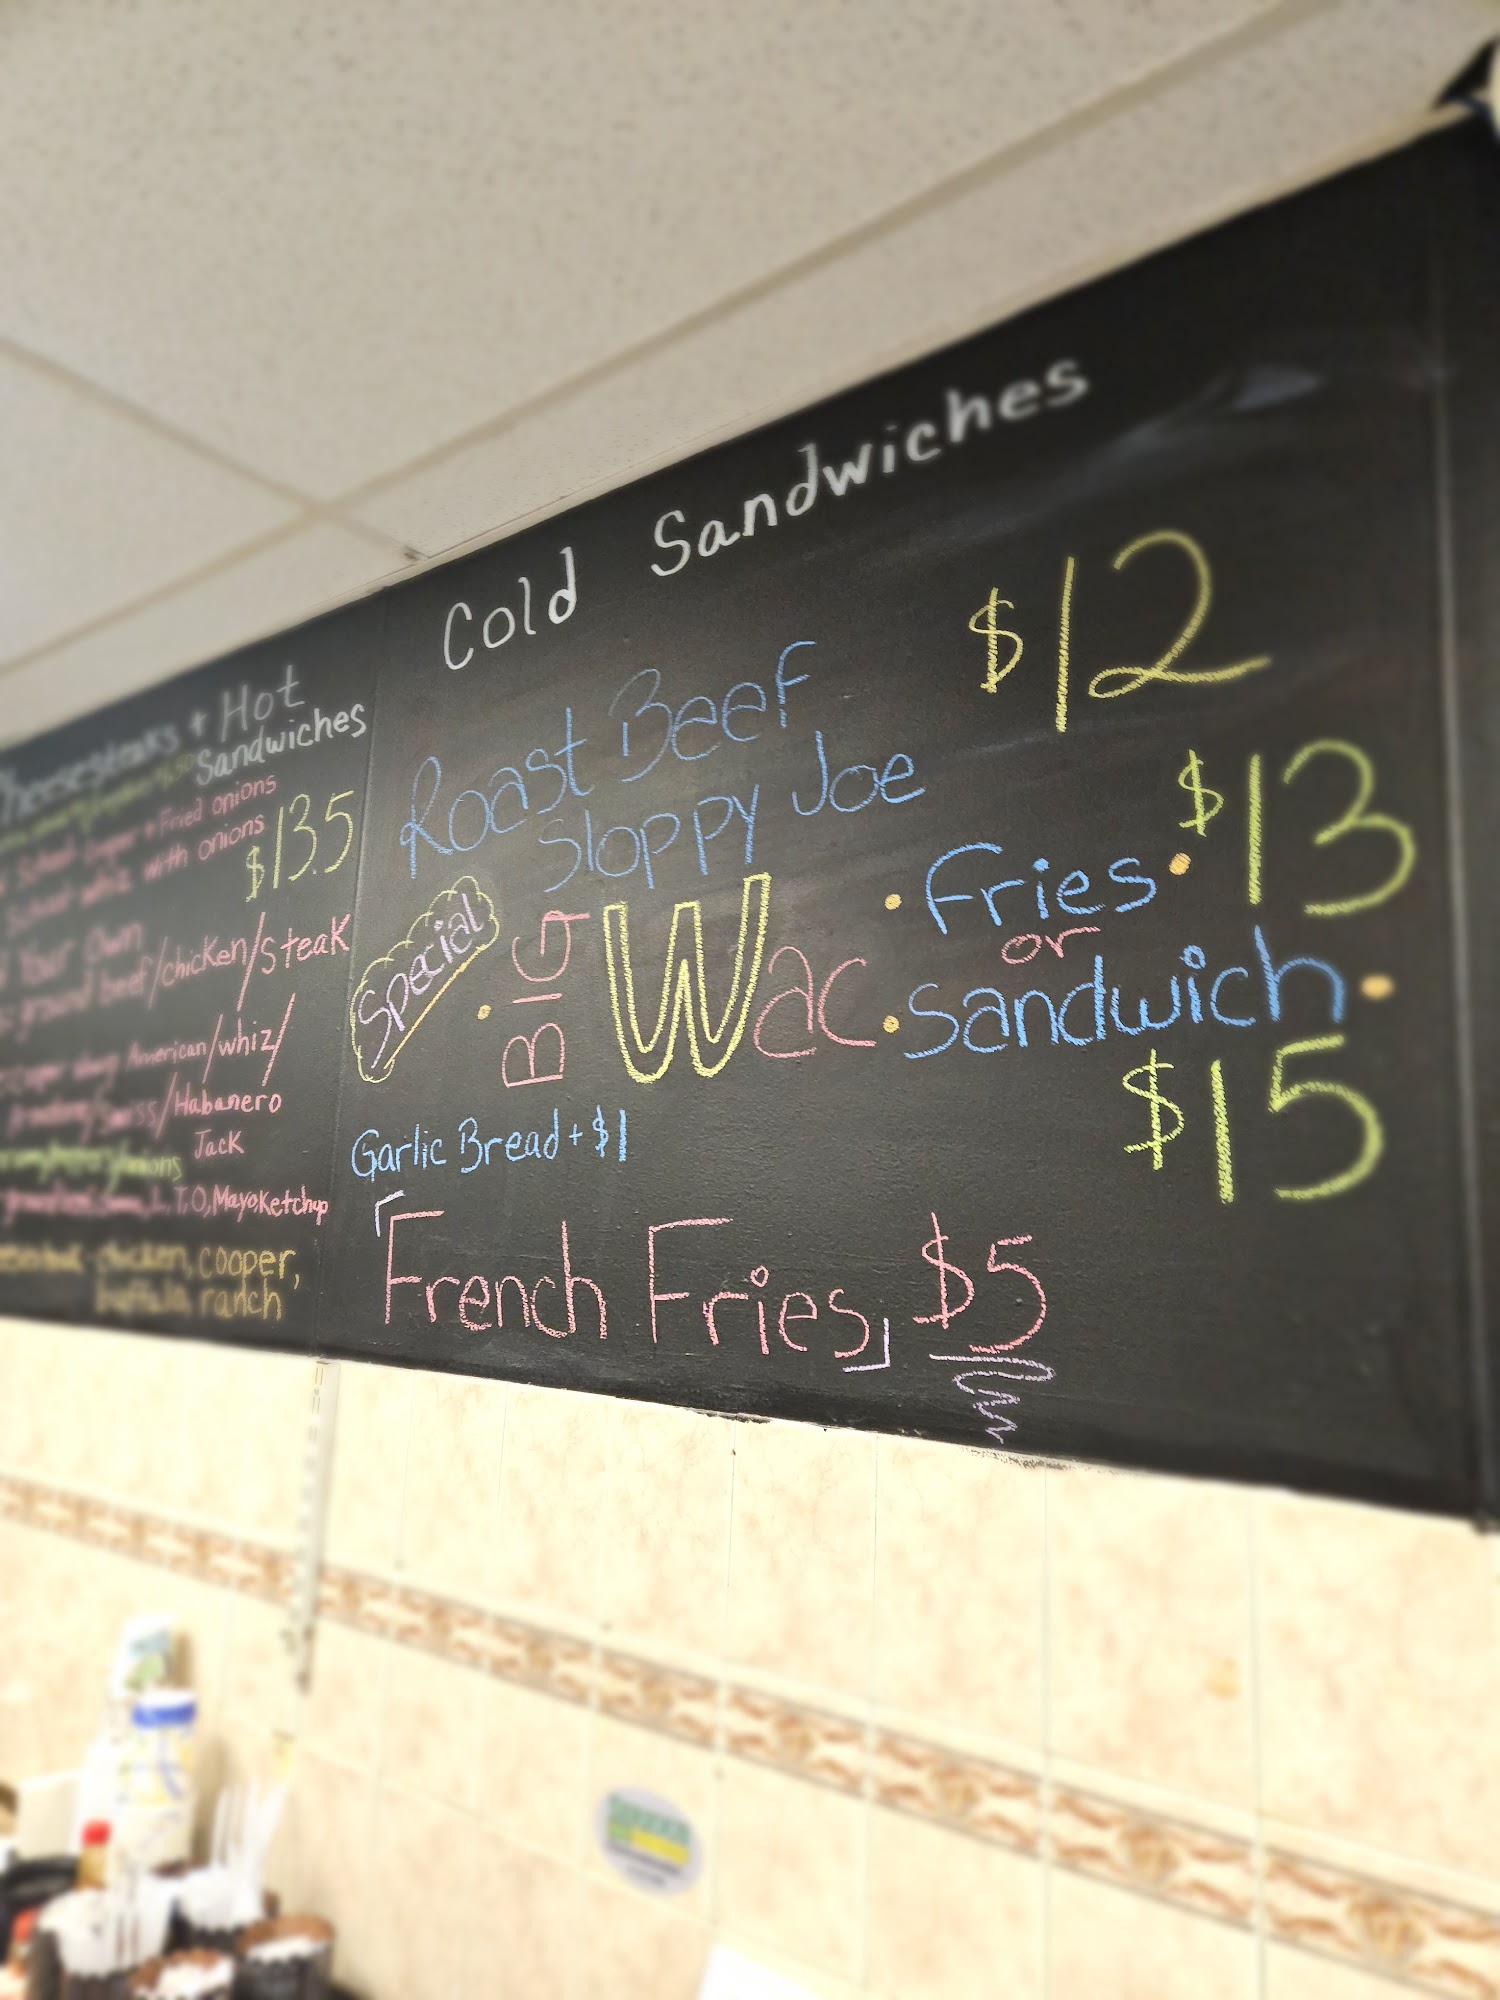 Hot
Sandwiches
Fried onions
whiz with onions
$13.5
Your Own
ground beef/chicken/steak
American/whiz/
/Swiss/Habanero
Jack
onions
L, T, O, Mayo,Ketchup
chicken, cooper,
buffalo, ranch
Cold Sandwiches
Roast Beef $12
Sloppy Joe $13
Special
BIG Wac
Fries
or
Sandwich
$15
Garlic Bread + $1
「French Fries」 $5